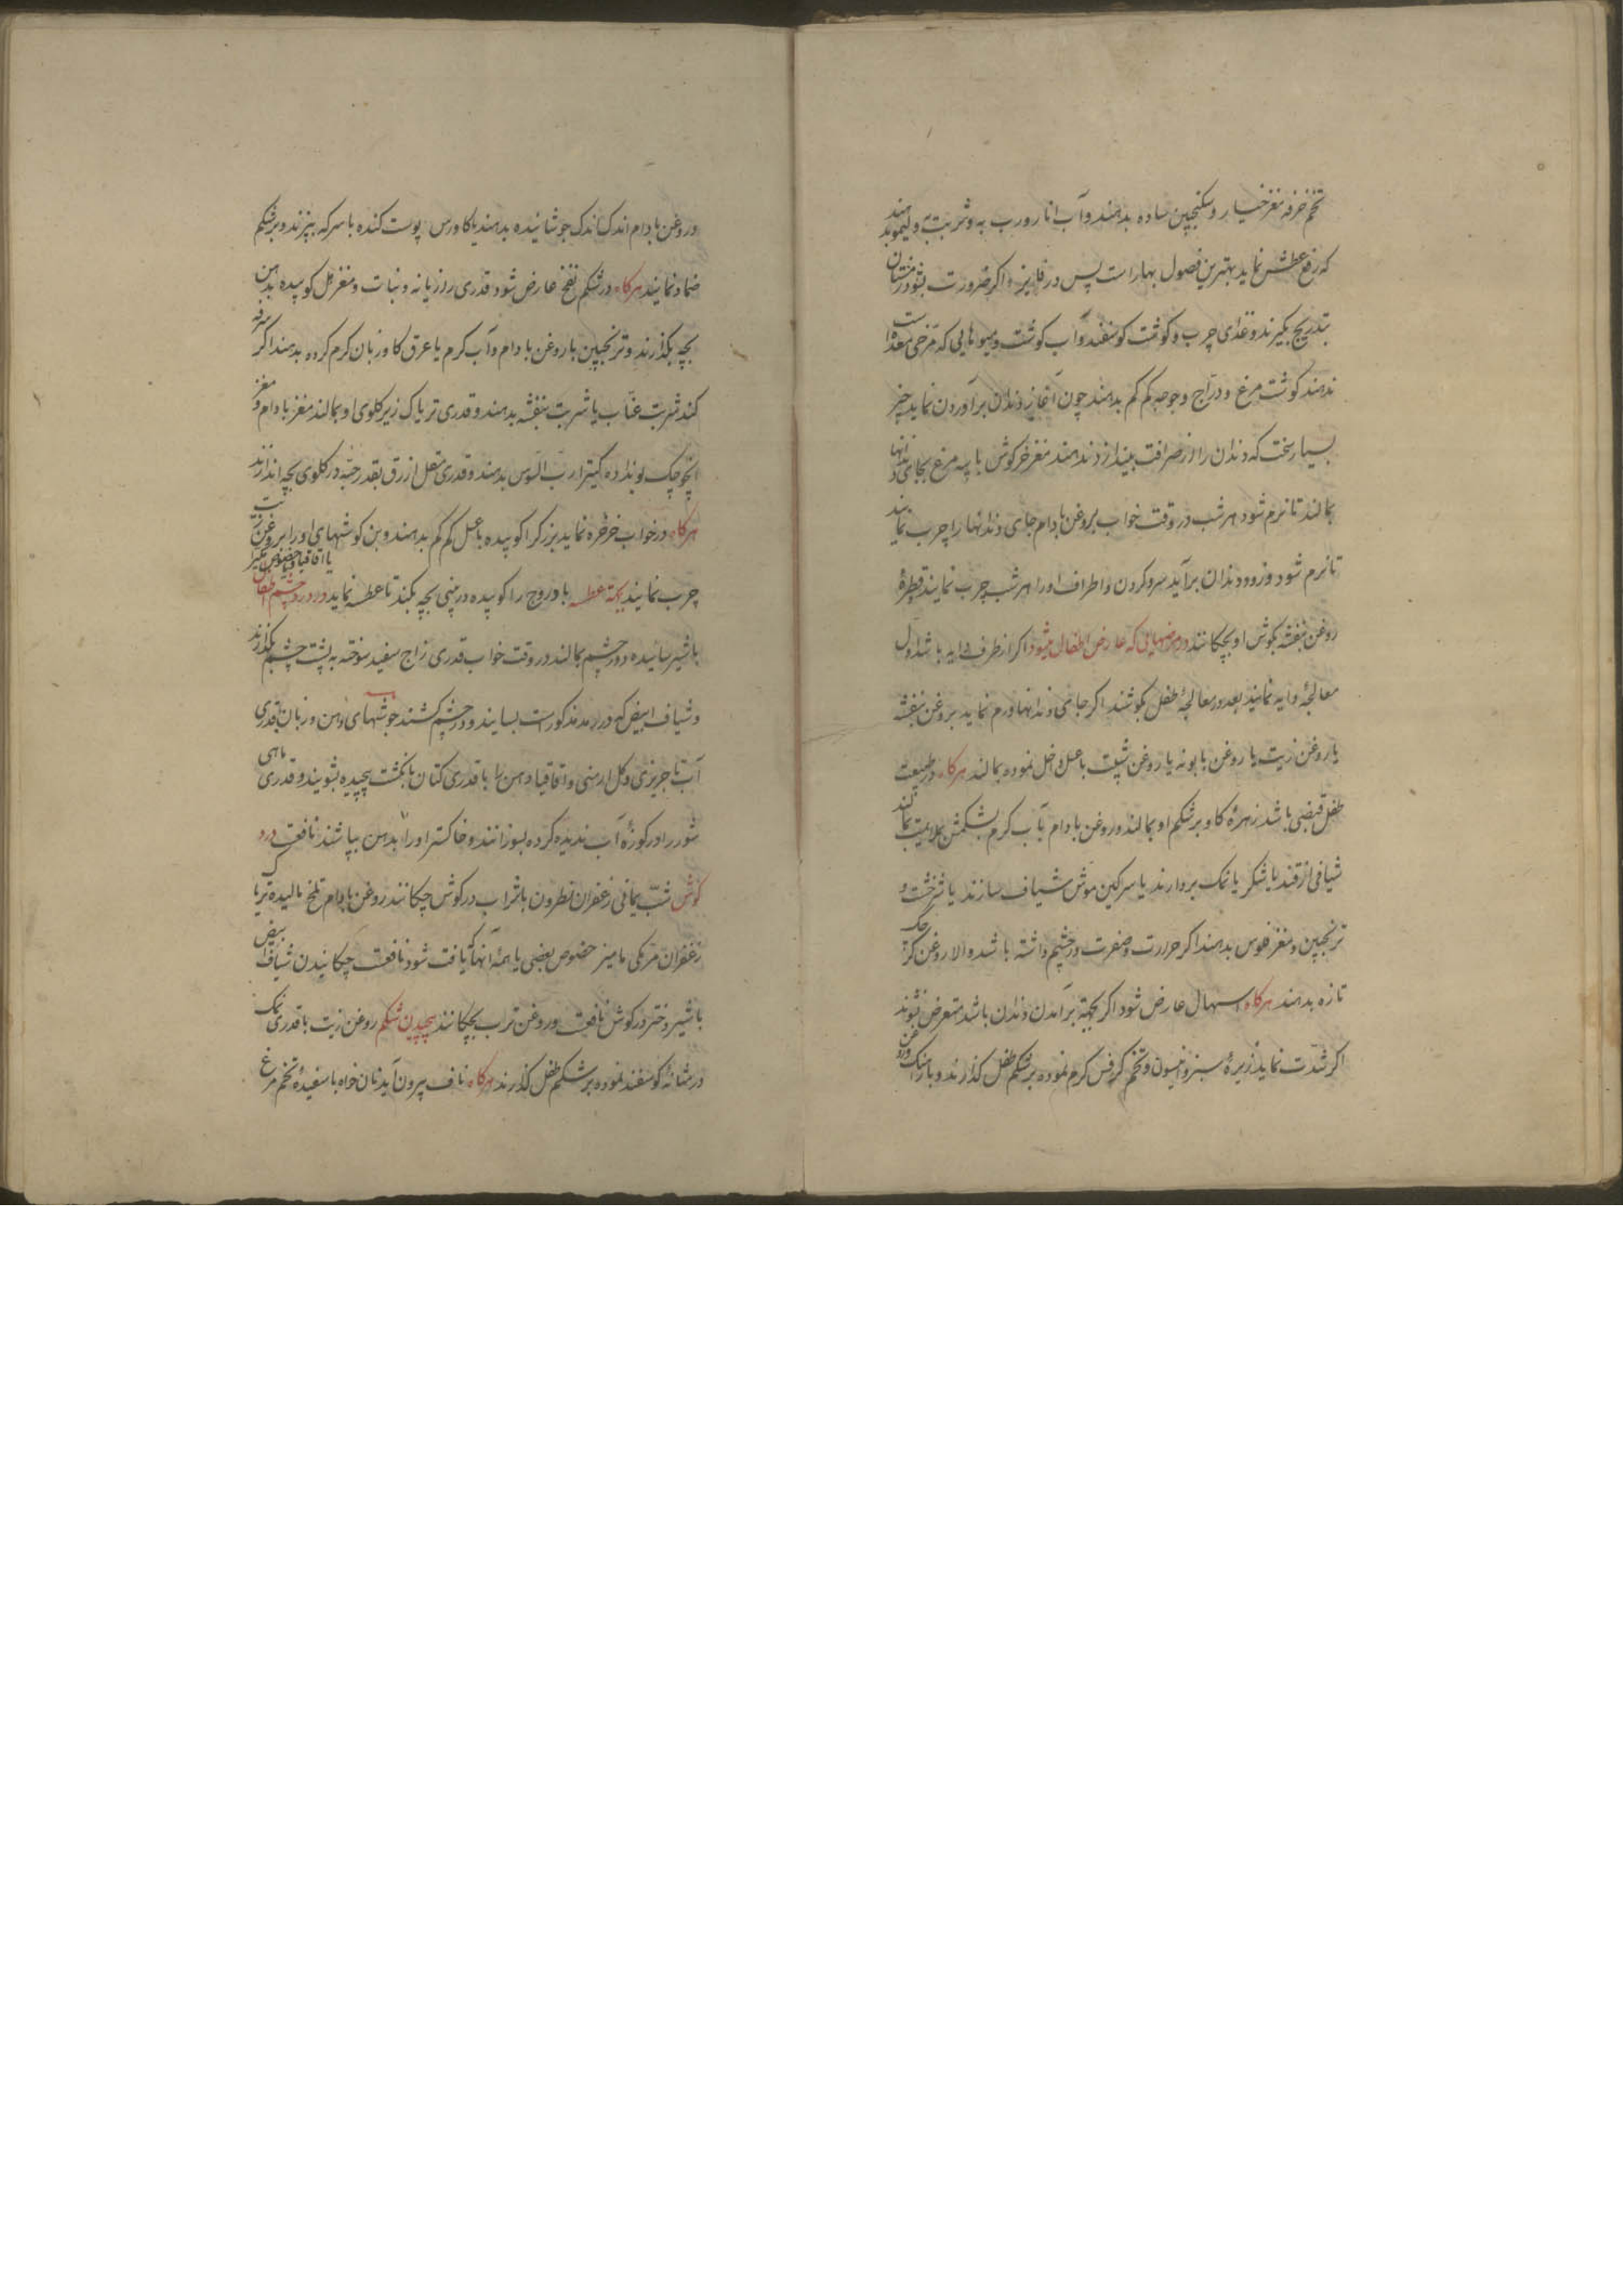 تخم خرفه مغز خیار و سکنجبین ساده بدهند و آب انار و رب به و شربت به و لیمو بدهند
که رفع عطش نماید بهترین فصول بهار است پس در فایزه اکر ضرورت بشود در زمستان
بتدریج بکیرند و غذای چرب و کوشت کوسفند و آب کوشت و میوهایی که مرخی معده است
ندهند کوشت مرغ و دراج و جوجه کم کم بدهند چون آغاز دندان برآوردن نماید چیز
بسیار سخت که دندان را از صرافت بیندازد ندهند مغز خرکوش با پیه مرغ بجای دندانها
بمالند تا نرم شود هر شب در وقت خواب بروغن بادام جای دندانها را چرب نمایند
تا نرم شود و زود دندان برآید سر و کردن و اطراف او را هر شب چرب نمایند قطرهٔ
روغن بنفشه بکوش او بچکانند در مرضهایی که عارض اطفال میشود اکر از طرف دایه باشد اول
معالجهٔ دایه نمایند بعد در معالجهٔ طفل بکوشند اکر جای دندانها ورم نماید بروغن بنفشه
یا روغن زیت یا روغن بابونه یا روغن شبت با عسل داخل نموده بمالند هرکاه در طبیعت
طفل قبضی باشد زهرهٔ کاو بر شکم او بمالند و روغن بادام یا آب کرم بشکمش بملایمت بمالند
شیافی از قند یا شکر یا نمک بردارند یا سرکین موش شیاف سازند یا شرخشت و
ترنجبین و مغز فلوس بدهند اکر حرارت و صفرت در چشم داشته باشد والا روغن کرچک
تازه بدهند هرکاه اسهال عارض شود اکر بجهة برآمدن دندان باشد متعرض نشوند
اکر شدت نماید زیرهٔ سبز و انیسون و تخم کرفس کرم نموده بر شکم طفل کذارند و بارهنک
و روغن بادام اندک اندک جوشانیده بدهند یا کاورس پوست کنده با سرکه بپزند و بر شکم
ضماد نمایند هرکاه در شکم نفخ عارض شود قدری رازیانه و نبات و مغز هل کوبیده بدهن
بچه بکذارند و ترنجبین با روغن بادام و آب کرم یا عرق کاو زبان کرم کرده بدهند اکر سرفه
کند شربت عناب یا شربت بنفشه بدهند و قدری تریاک زیر کلوی او بمالند مغز بادام و مغز
انچوچک بو نداده کتیرا رب السوس بدهند و قدری مقل ازرق بقدر حبه در کلوی بچه اندازند
هرکاه در خواب خرخره نماید بزرک را کوبیده با عسل کم کم بدهند و بن کوشهای او را بروغن زیت
چرب نمایند بجهة عطسه بادروج را کوبیده در بینی بچه بکند تا عطسه نماید در درد چشم اطفال
با شیر سائیده دور چشم بمالند در وقت خواب قدری زاج سفید سوخته به پشت چشم بکذارند
و شیاف ابیض که در رمد مذکور است بسایند و در چشم کشند جوشهای دهن و زبان قدری
آب تاجریزی و کل ارمنی و اقاقیا دهن را با قدری کتان بانکشت پیچیده بشویند و قدری ماهی
شور را در کوزهٔ آب ندیده کرده بسوزانند و خاکستر او را بدهن بپاشند نافعست درد
کوش شب یمانی زعفران نطرون با شراب در کوش چکانند روغن بادام تلخ مالیده تر یا
زعفران مرمکی مامیز حضوض بعضی یا همهٔ آنها که یافت شود نافعست چکانیدن شیاف ابیض
با شیر دختر در کوش نافعست و روغن ترب بچکانند پیچیدن شکم روغن زیت با قدری نمک
در مثانهٔ کوسفند نموده بر شکم طفل کذارند هرکاه ناف بیرون آید نان خواه با سفیدهٔ تخم مرغ